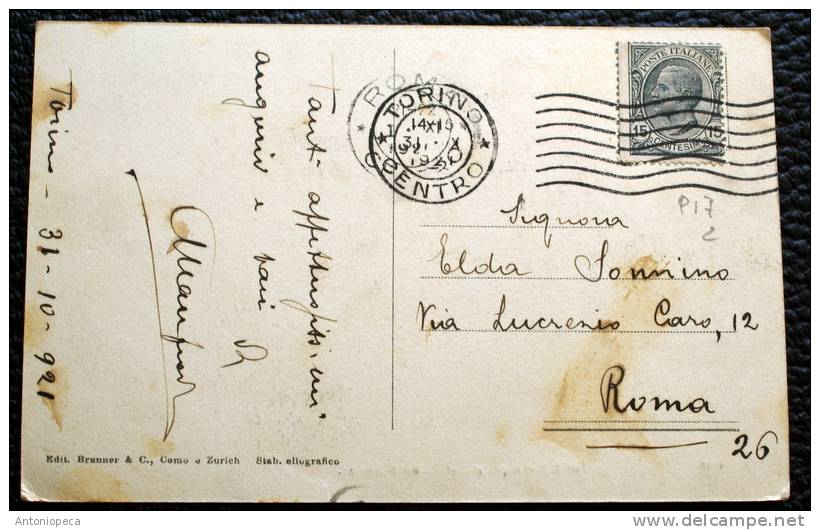 Torino - 31-10-921
Tanti affettuosissimi
auguri e
POSTE ITALIANE
15 15
CENTESIMI
ROMA
TORINO
14-15
31 X
CENTRO
P17
2
Signora
Elda Sonnino
Via Lucrezio Caro, 12
Roma
26
Edit. Brunner & C., Como e Zurich Stab. eliografico
Antoniopeca
www.delcampe.net